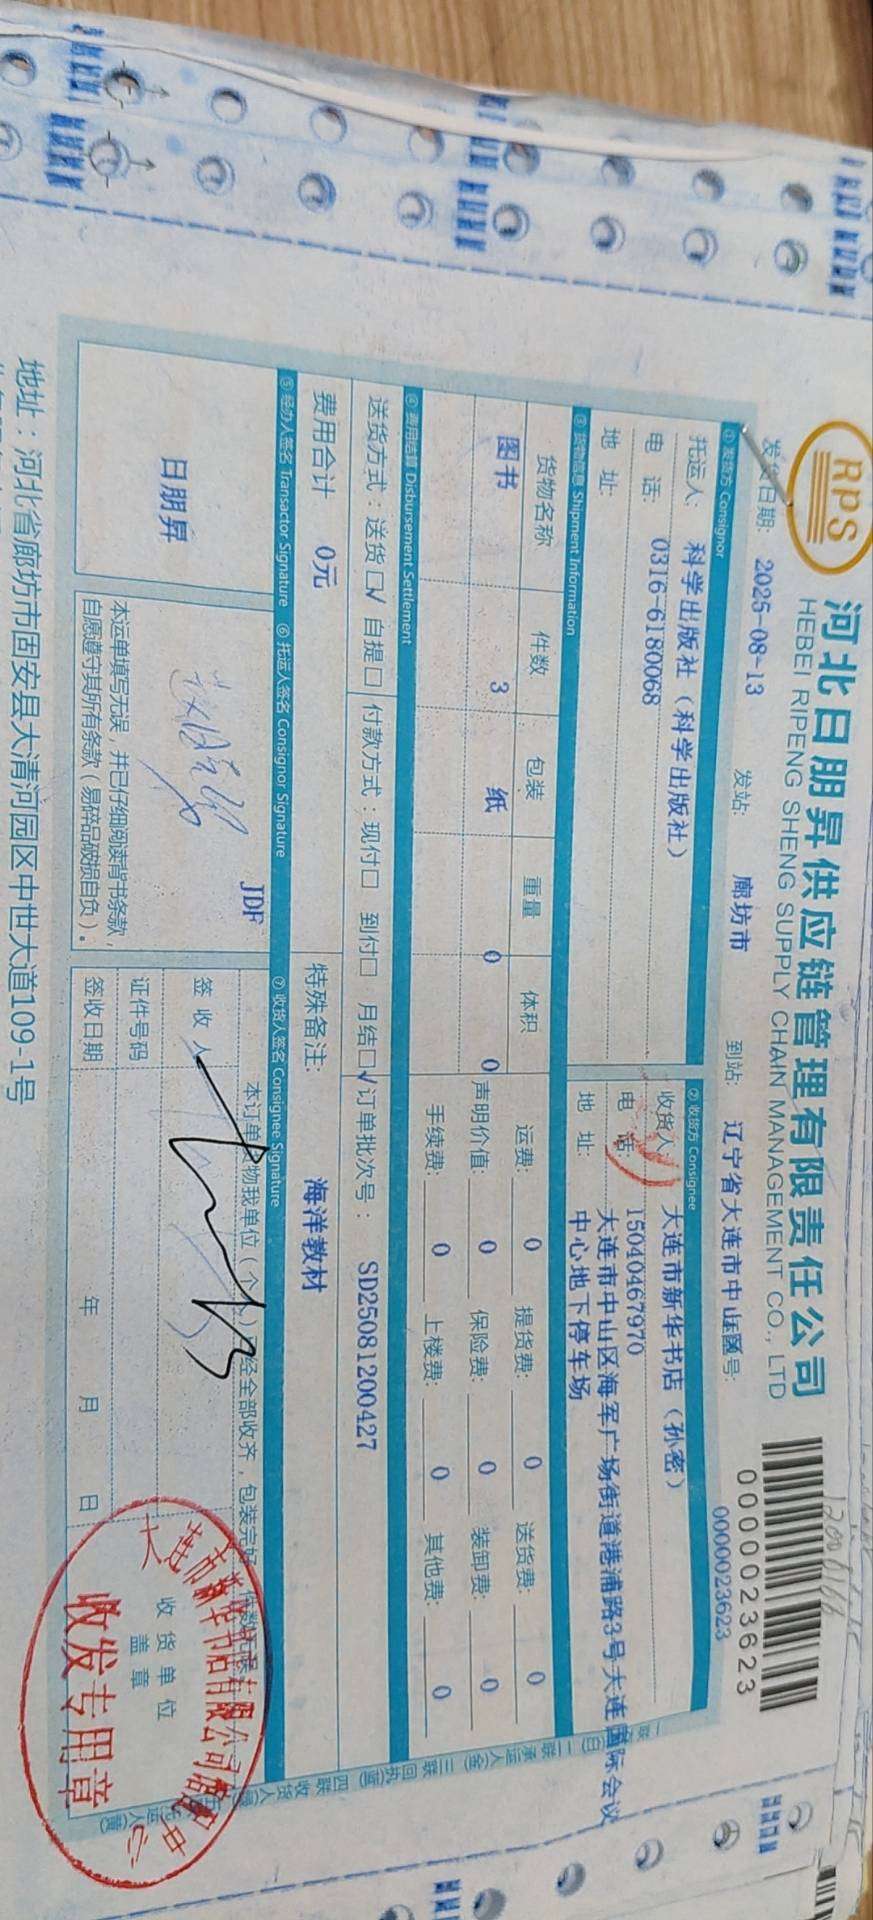 RPS
河北日朋昇供应链管理有限责任公司
HEBEI RIPENG SHENG SUPPLY CHAIN MANAGEMENT CO., LTD
0000023623
0000023623
发货日期: 2025-08-13 发站: 廊坊市 到站: 辽宁省大连市中山区 号:
① 发货方 Consignor ② 收货方 Consignee
托运人: 科学出版社（科学出版社）
电 话: 0316-6180068
地 址:
收货人: 大连市新华书店（孙密）
电 话: 15040467970
地 址: 大连市中山区海军广场街道港浦路3号大连国际会议
中心地下停车场
③ 货物信息 Shipment Information
货物名称 件数 包装 重量 体积
图书 3 纸 0 0
运费: 0 提货费: 0 送货费: 0
声明价值: 0 保险费: 0 装卸费: 0
手续费: 0 上楼费: 0 其他费: 0
④ 费用结算 Disbursement Settlement
送货方式：送货□√ 自提□ 付款方式：现付□ 到付□ 月结□√ 订单批次号： SD25081200427
费用合计 0元 特殊备注: 海洋教材
⑤ 经办人签名 Transactor Signature ⑥ 托运人签名 Consignor Signature ⑦ 收货人签名 Consignee Signature
日朋昇
JDF
本运单填写无误，并已仔细阅读背书条款，
自愿遵守其所有条款（易碎品破损自负）。
签 收 人
证件号码
签收日期 年 月 日
收货单位
盖章
收发专用章
地址：河北省廊坊市固安县大清河园区中世大道109-1号